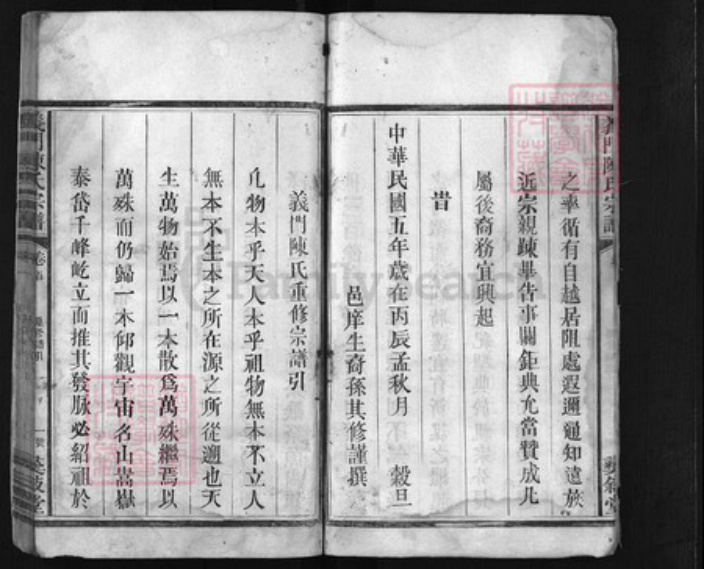 義門陳氏宗譜
之率循有自越居阻處遐邇通知遠族
近宗親踈畢告事關鉅典允當贊成凡
屬後裔務宜興起
旹
中華民國五年歲在丙辰孟秋月 穀旦
邑庠生裔孫其修謹撰
義門陳氏重修宗譜引
凡物本乎天人本乎祖物無本不立人
無本不生本之所在源之所從遡也天
生萬物始焉以一本散為萬殊繼焉以
萬殊而仍歸一本仰觀宇宙名山嵩嶽
泰岱千峰屹立而推其發脉必紹祖於
義門陳氏宗譜
FamilySearch